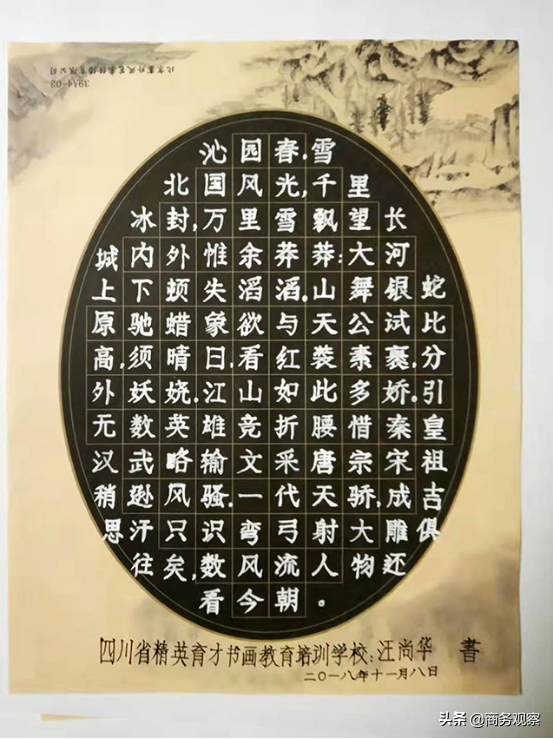 39A4-02
沁园春.雪
北国风光,千里
冰封,万里雪飘望长
城内外惟余莽莽:大河
上下顿失滔滔.山舞银蛇
原驰蜡象欲与天公试比
高,须晴日.看红装素裹,分
外妖娆.江山如此多娇.引
无数英雄竞折腰惜秦皇
汉武略输文采唐宗宋祖
稍逊风骚.一代天骄,成吉
思汗只识弯弓射大雕俱
往矣,数风流人物还
看今朝。
四川省精英育才书画教育培训学校:汪尚华 書
二〇一八年十一月八日
头条 @商务观察